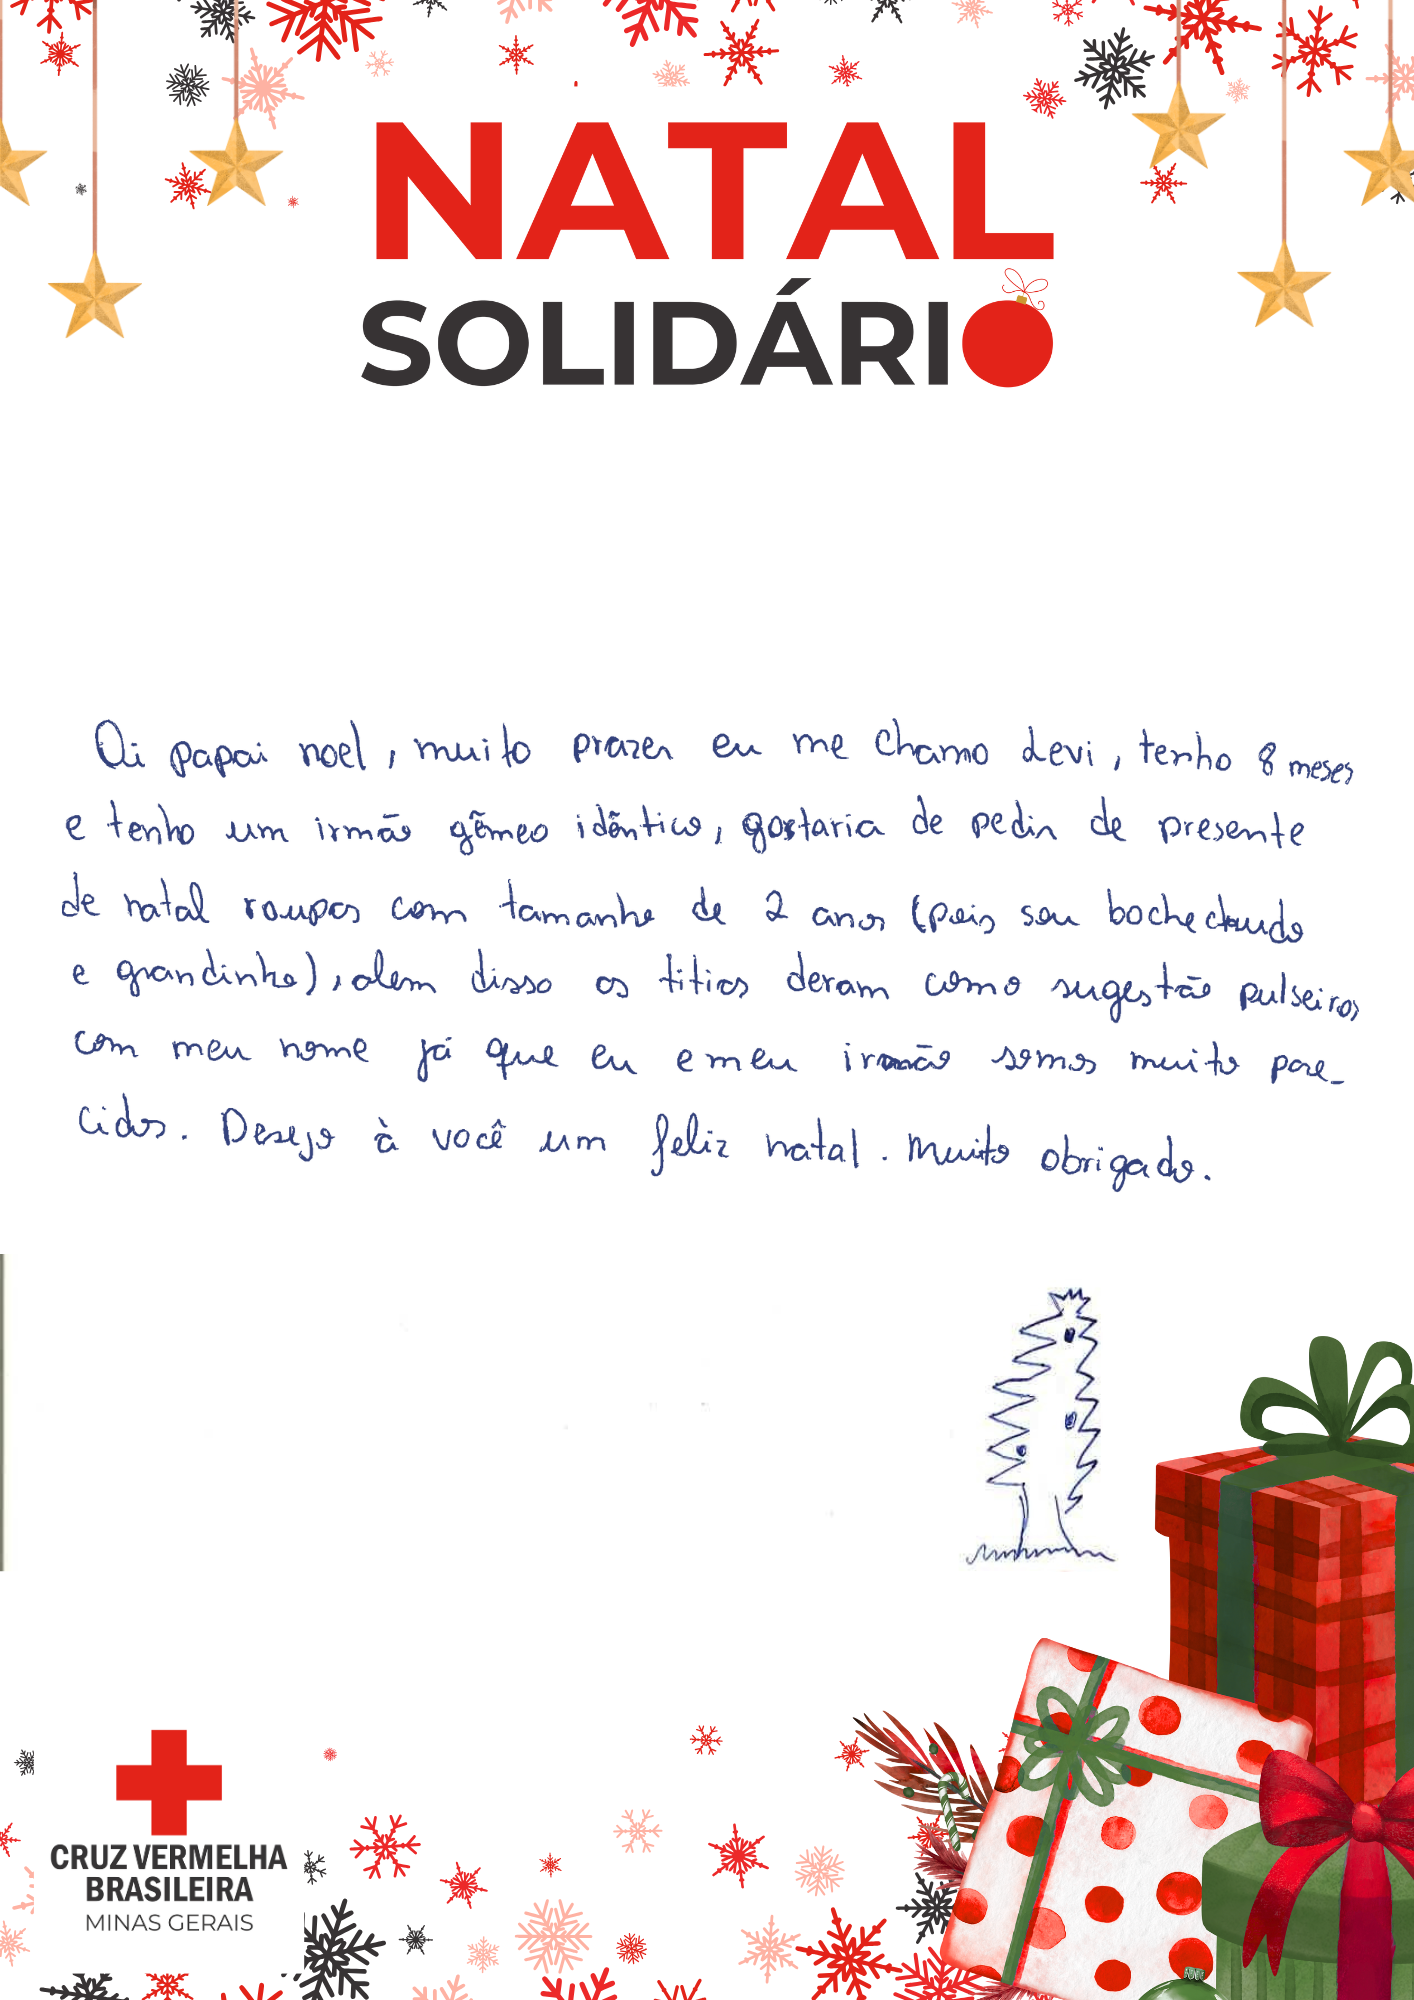 NATAL
SOLIDÁRIO
Oi papai noel, muito prazer eu me chamo Levi, tenho 8 meses
e tenho um irmão gêmeo idêntico, gostaria de pedir de presente
de natal roupas com tamanho de 2 anos (pois sou bochechudo
e grandinho), alem disso os titios deram como sugestão pulseiras
com meu nome já que eu e meu irmão somos muito pare-
cidos. Desejo à você um feliz natal. Muito obrigado.
CRUZ VERMELHA
BRASILEIRA
MINAS GERAIS